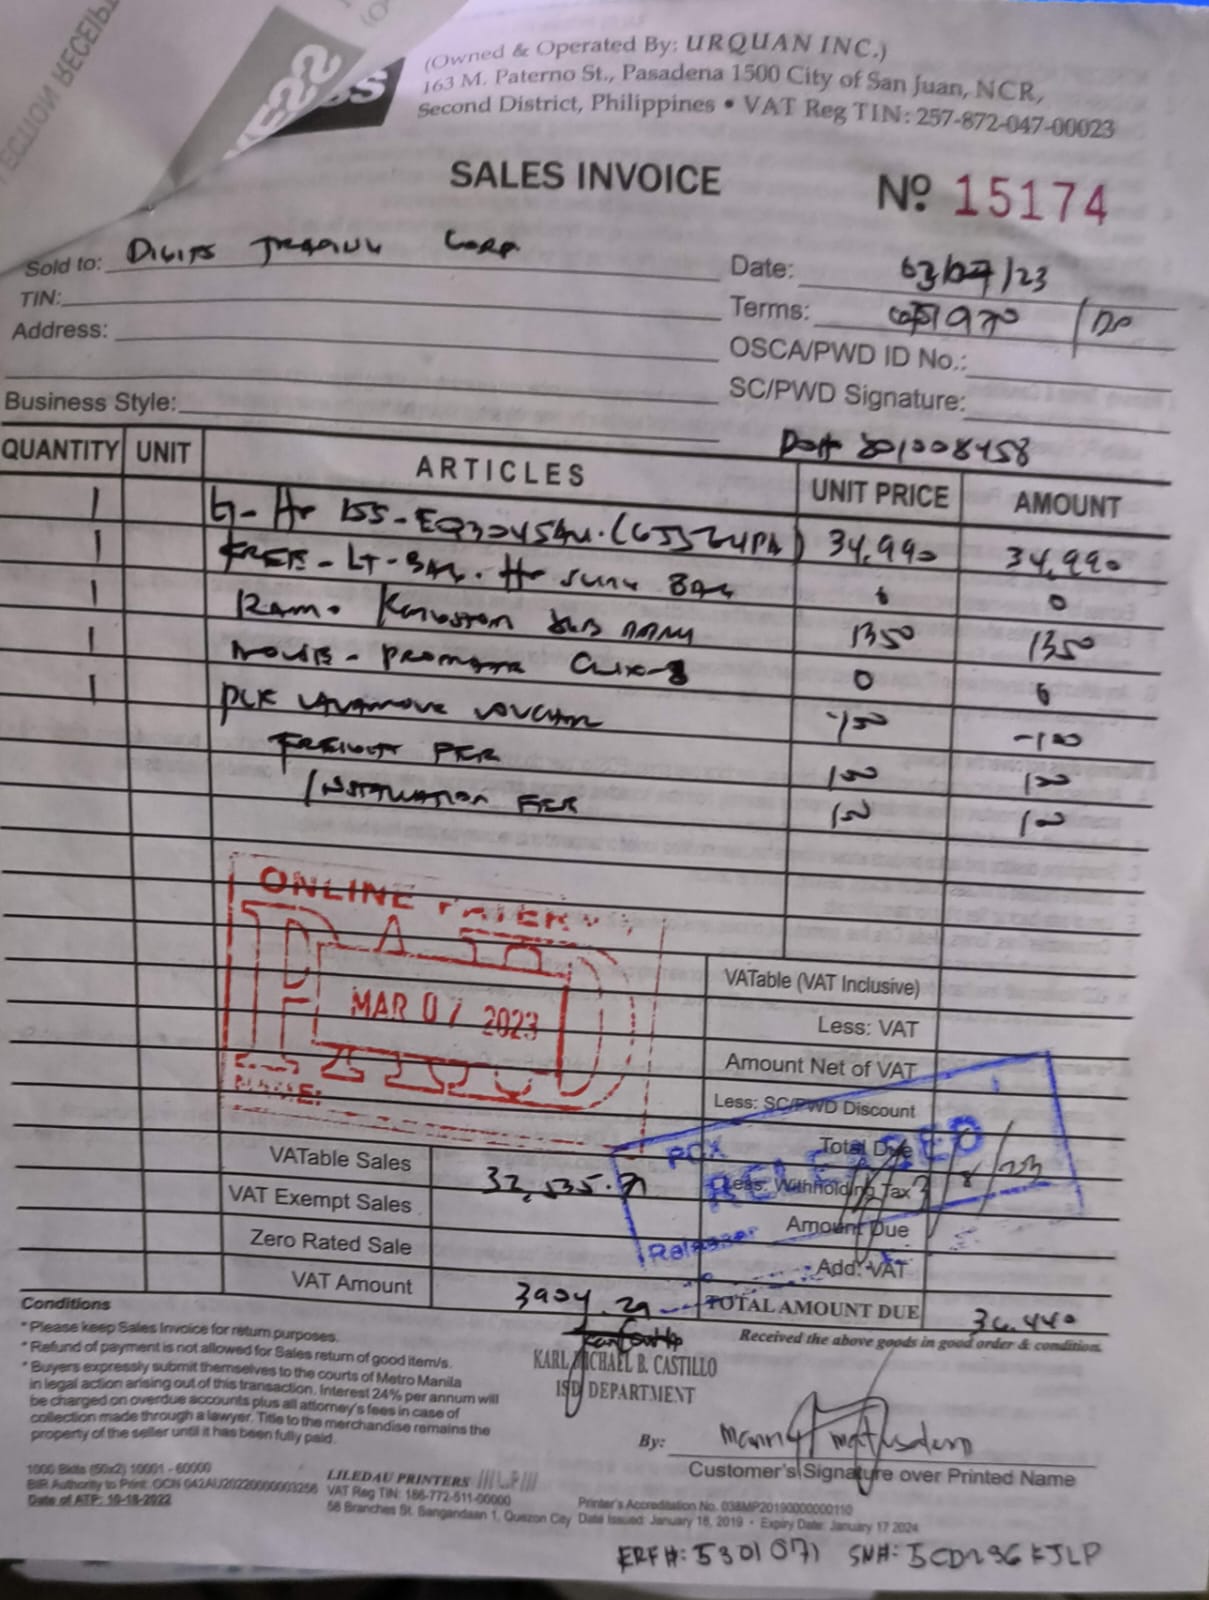 (Owned & Operated By: URQUAN INC.)
163 M. Paterno St., Pasadena 1500 City of San Juan, NCR,
Second District, Philippines • VAT Reg TIN: 257-872-047-00023
SALES INVOICE
Nº 15174
Sold to: Digits Corp
Date: 03/07/23
TIN:
Terms:
Address:
OSCA/PWD ID No.:
SC/PWD Signature:
Business Style:
801008458
QUANTITY UNIT ARTICLES UNIT PRICE AMOUNT
1 34,990 34,990
1 0 0
1 RAM- Kingston 8GB 1350 1350
1 MOUSE- PROMATE CLIX-8 0 0
1 -100 -100
FREIGHT FEE 100 100
INSTALLATION FEE 100 100
ONLINE
PAID
MAR 07 2023
NAME:
VATable (VAT Inclusive)
Less: VAT
Amount Net of VAT
Less: SC/PWD Discount
Total Due
Less: Withholding Tax
Amount Due
Add: VAT
TOTAL AMOUNT DUE 36,440
RELEASED
3/8/23
Releaser
VATable Sales 32,535.71
VAT Exempt Sales
Zero Rated Sale
VAT Amount 3904.29
Conditions
* Please keep Sales Invoice for return purposes.
* Refund of payment is not allowed for Sales return of good item/s.
* Buyers expressly submit themselves to the courts of Metro Manila
in legal action arising out of this transaction. Interest 24% per annum will
be charged on overdue accounts plus all attorney's fees in case of
collection made through a lawyer. Title to the merchandise remains the
property of the seller until it has been fully paid.
KARL MICHAEL B. CASTILLO
ISD DEPARTMENT
Received the above goods in good order & condition.
By:
Customer's Signature over Printed Name
1000 Bklts (50x2) 10001 - 60000
BIR Authority to Print: OCN 042AU20220000003256
Date of ATP: 10-18-2022
LILEDAU PRINTERS
VAT Reg TIN: 186-772-511-00000
58 Branches St. Sangandaan 1, Quezon City
Printer's Accreditation No. 038MP20190000000110
Date Issued: January 18, 2019 • Expiry Date: January 17 2024
ERF#: 5301071 SN#: 5CD236FJLP